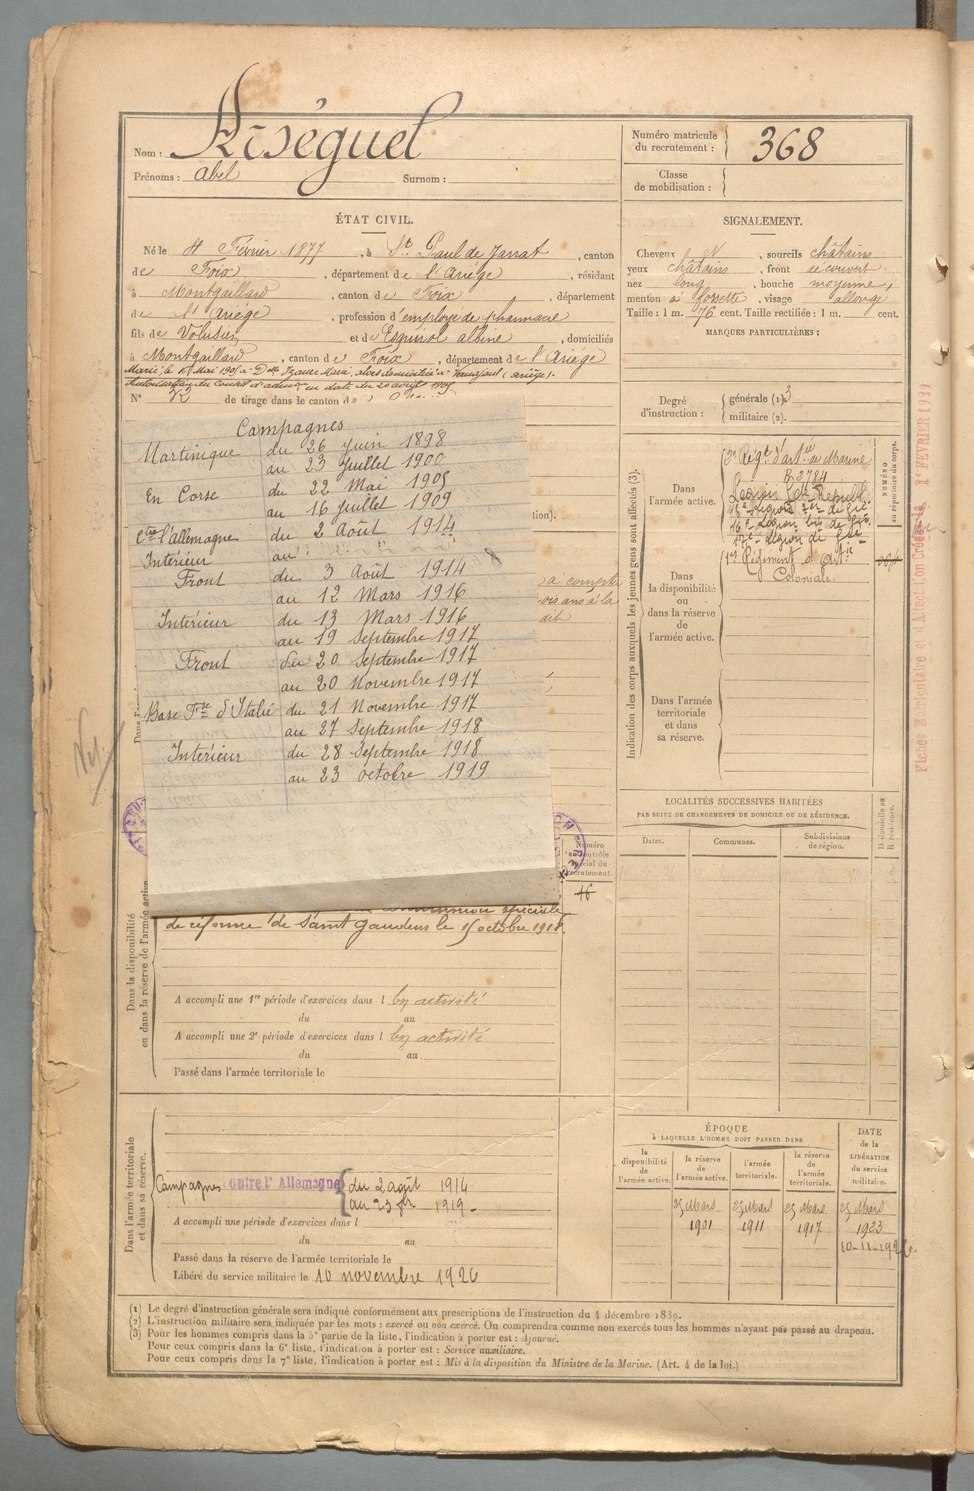 Nom : Riséguel
Prénoms : abel Surnom :
Numéro matricule du recrutement : 368
Classe de mobilisation :
ÉTAT CIVIL.
Né le 4 Février 1877, à St Paul de Jarrat, canton
de Foix, département de l'Ariége, résidant
à Montgaillard, canton de Foix, département
de l'Ariége, profession d'employe de pharmacie
fils de Volusien et de Esquirol albine, domiciliés
à Montgaillard, canton de Foix, département de l'Ariége
Autorisation du Conseil d'admon en date du 20 août 1905
N° de tirage dans le canton de
SIGNALEMENT.
Cheveux N, sourcils châtains
yeux châtains, front découvert
nez long, bouche moyenne,
menton à fossette, visage allongé
Taille : 1 m. 76 cent. Taille rectifiée : 1 m. cent.
MARQUES PARTICULIÈRES :
Degré d'instruction : générale (1) 3
militaire (2).
Campagnes
Martinique du 26 Juin 1898
au 23 Juillet 1900
En Corse du 22 Mai 1905
au 16 Juillet 1909
Ctre l'allemagne du 2 Août 1914
Intérieur au
Front du 3 Août 1914
au 12 Mars 1916
Intérieur du 13 Mars 1916
au 19 Septembre 1917
Front du 20 Septembre 1917
au 20 Novembre 1917
Base Fse d'Italie du 21 Novembre 1917
au 27 Septembre 1918
Intérieur du 28 Septembre 1918
au 23 octobre 1919
tion).
a compter
ois ans à la
dit
Indication des corps auxquels les jeunes gens sont affectés (3).
Dans l'armée active.
Régt d'artie de Marine
B 2784
NUMÉRO au répertoire du corps.
Dans la disponibilité ou dans la réserve de l'armée active.
1er Régiment d'Artie
Coloniale
Dans l'armée territoriale et dans sa réserve.
Fiches Matriculaire et d'Affectation Créées le 1er FEVRIER 1929
LOCALITÉS SUCCESSIVES HABITÉES
PAR SUITE DE CHANGEMENTS DE DOMICILE OU DE RÉSIDENCE.
Dates. Communes. Subdivisions de région. D domicile ou R résidence.
Numéro au contrôle spécial du recrutement.
16
Dans la disponibilité ou dans la réserve de l'armée active
commission spéciale
de réforme de Saint Gaudens le 15 octobre 1918.
A accompli une 1re période d'exercices dans l en activité
du au
A accompli une 2e période d'exercices dans l en activité
du au
Passé dans l'armée territoriale le
Dans l'armée territoriale et dans sa réserve.
Campagnes contre l'Allemagne du 2 août 1914
au 23 1919
A accompli une période d'exercices dans l
du au
Passé dans la réserve de l'armée territoriale le
Libéré du service militaire le 10 novembre 1926
ÉPOQUE
À LAQUELLE L'HOMME DOIT PASSER DANS
la disponibilité de l'armée active. la réserve de l'armée active. l'armée territoriale. la réserve de l'armée territoriale.
DATE de la LIBÉRATION du service militaire.
25 Mars 1901
25 Mars 1911
25 Mars 1917
25 Mars 1923
10-11-1926
(1) Le degré d'instruction générale sera indiqué conformément aux prescriptions de l'instruction du 4 décembre 1889.
(2) L'instruction militaire sera indiquée par les mots : exercé ou non exercé. On comprendra comme non exercés tous les hommes n'ayant pas passé au drapeau.
(3) Pour les hommes compris dans la 5e partie de la liste, l'indication à porter est : Ajourné.
Pour ceux compris dans la 6e liste, l'indication à porter est : Service auxiliaire.
Pour ceux compris dans la 7e liste, l'indication à porter est : Mis à la disposition du Ministre de la Marine. (Art. 4 de la loi.)